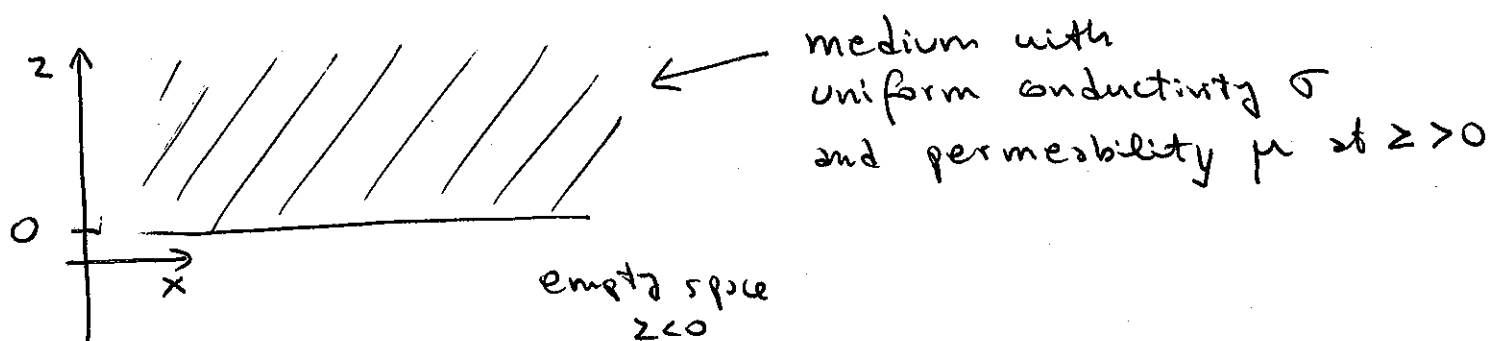 medium with
z
uniform conductivity σ
and permeability μ at z > 0
0
x
empty space
z<0